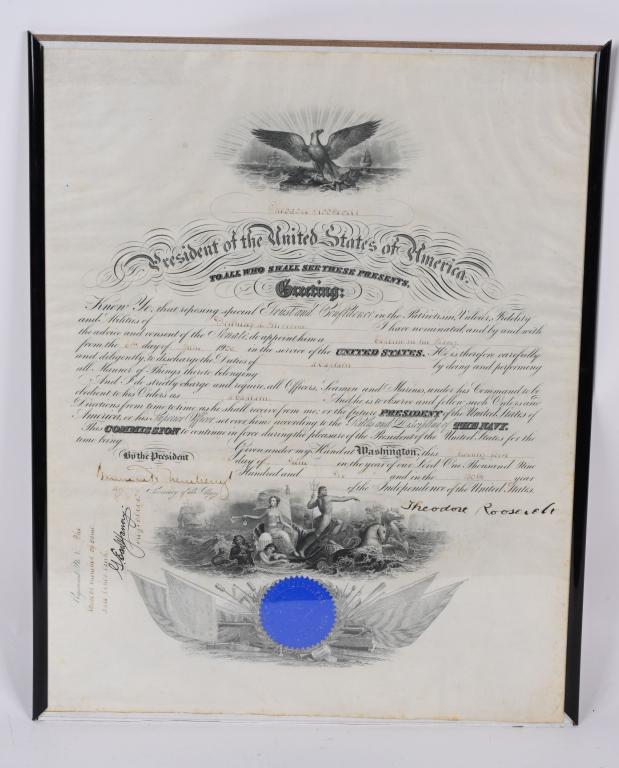 Theodore Roosevelt
President of the United States of America.
TO ALL WHO SHALL SEE THESE PRESENTS,
Greeting:
Know Ye, that reposing special Trust and Confidence in the Patriotism, Valour, Fidelity
and Abilities of I have nominated and by and with
the advice and consent of the Senate, do appoint him a Captain in the Navy
from the day of June in the service of the UNITED STATES. He is therefore carefully
and diligently to discharge the Duties of Captain by doing and performing
all Manner of Things thereto belonging
And I do strictly charge and require all Officers, Seamen and Marines under his Command to be
obedient to his Orders as Captain And he is to observe and follow such Orders and
Directions from time to time as he shall receive from me, or the future PRESIDENT of the United States of
America, or his Superior Officer set over him, according to the Rules and Discipline of THE NAVY.
This COMMISSION to continue in force during the pleasure of the President of the United States for the
time being
By the President
Given under my Hand at Washington, this
day of June in the year of our Lord One Thousand Nine
Hundred and Six and in the year
of the Independence of the United States.
Secretary of the Navy
Theodore Roosevelt